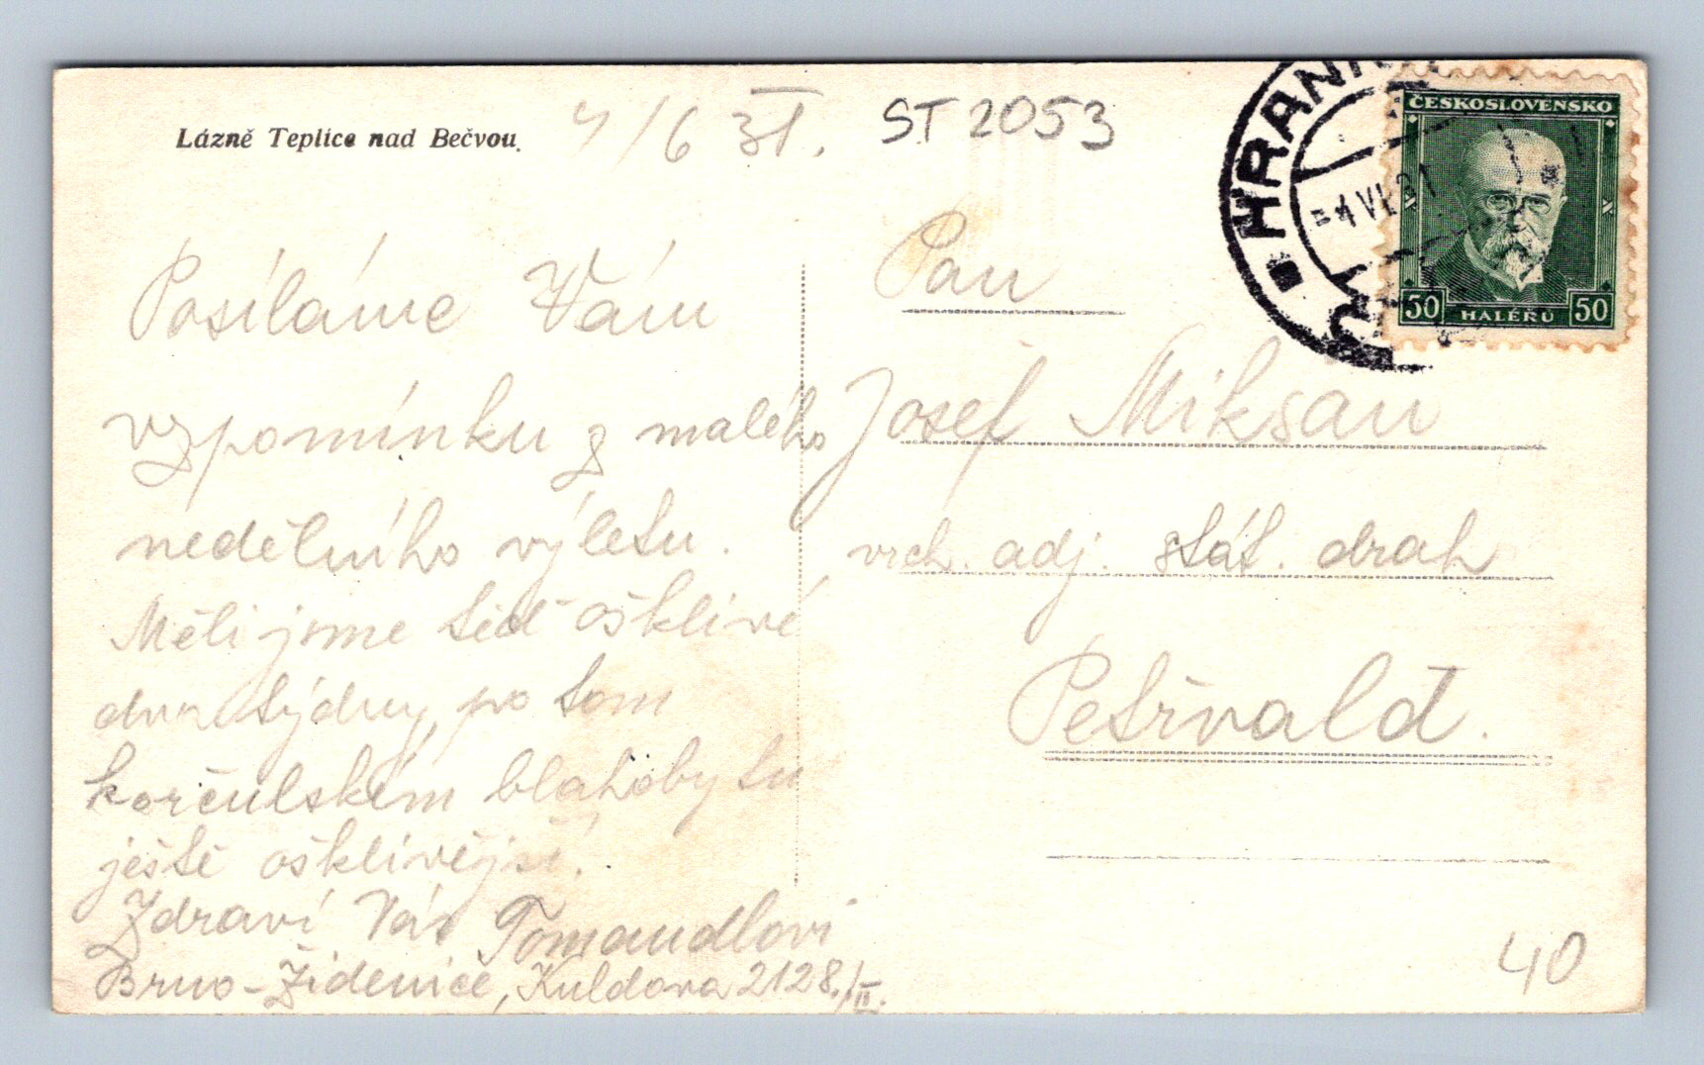 Lázně Teplice nad Bečvou.
4/6 31.
ST 2053
HRANI
4 VI 31
ČESKOSLOVENSKO
50 HALÉŘŮ 50
Posíláme Vám
vzpomínku z malého
nedělního výletu.
Měli jsme teď ošklivé
dva týdny, po tom
korčulském blahobytu
ještě ošklivější.
Zdraví Vás Tomandlovi
Brno-Židenice, Kuldova 2128./II.
Pan
Josef Miksan
vrch. adj. stát. drah
Petřvald.
40